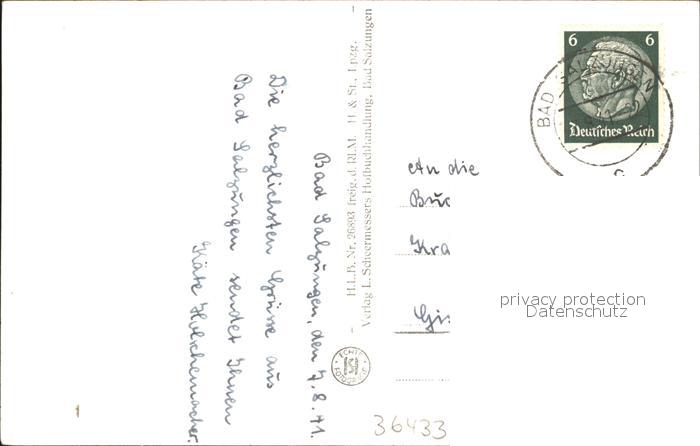 Bad Salzungen, den 7.8.41.
Die herzlichsten Grüsse aus
Bad Salzungen sendet Ihnen
Käte
H.L.B. Nr. 26893 freig. d. RLM. H & St., Lpzg.
Verlag L. Scheermessers Hofbuchhandlung, Bad Salzungen
ECHTE
6 6
Deutsches Reich
BAD SALZUNGEN
An die
Buc
Kra
Gis
privacy protection
Datenschutz
36433